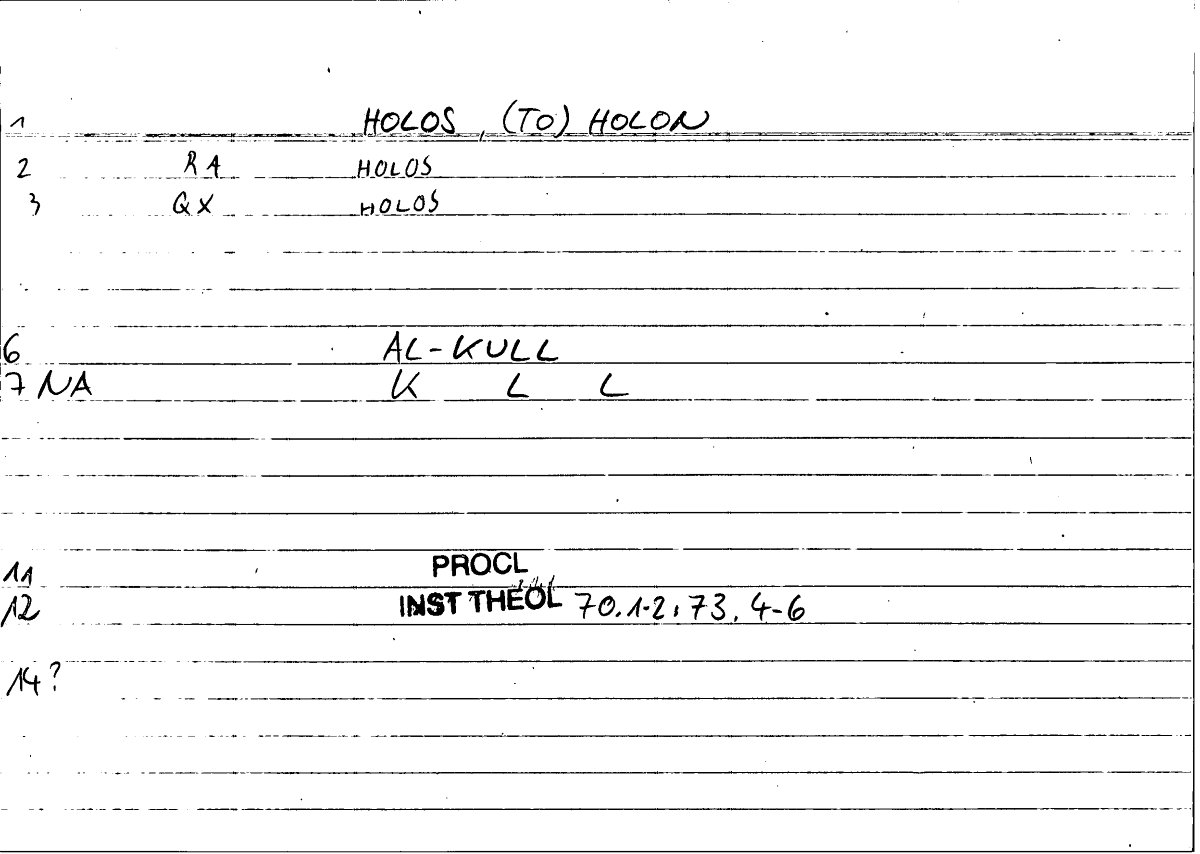 1 HOLOS, (TO) HOLON
2 RA HOLOS
3 QX HOLOS
6 AL-KULL
7 NA K L L
11 PROCL
12 INST THEOL 70.1-2; 73, 4-6
14?